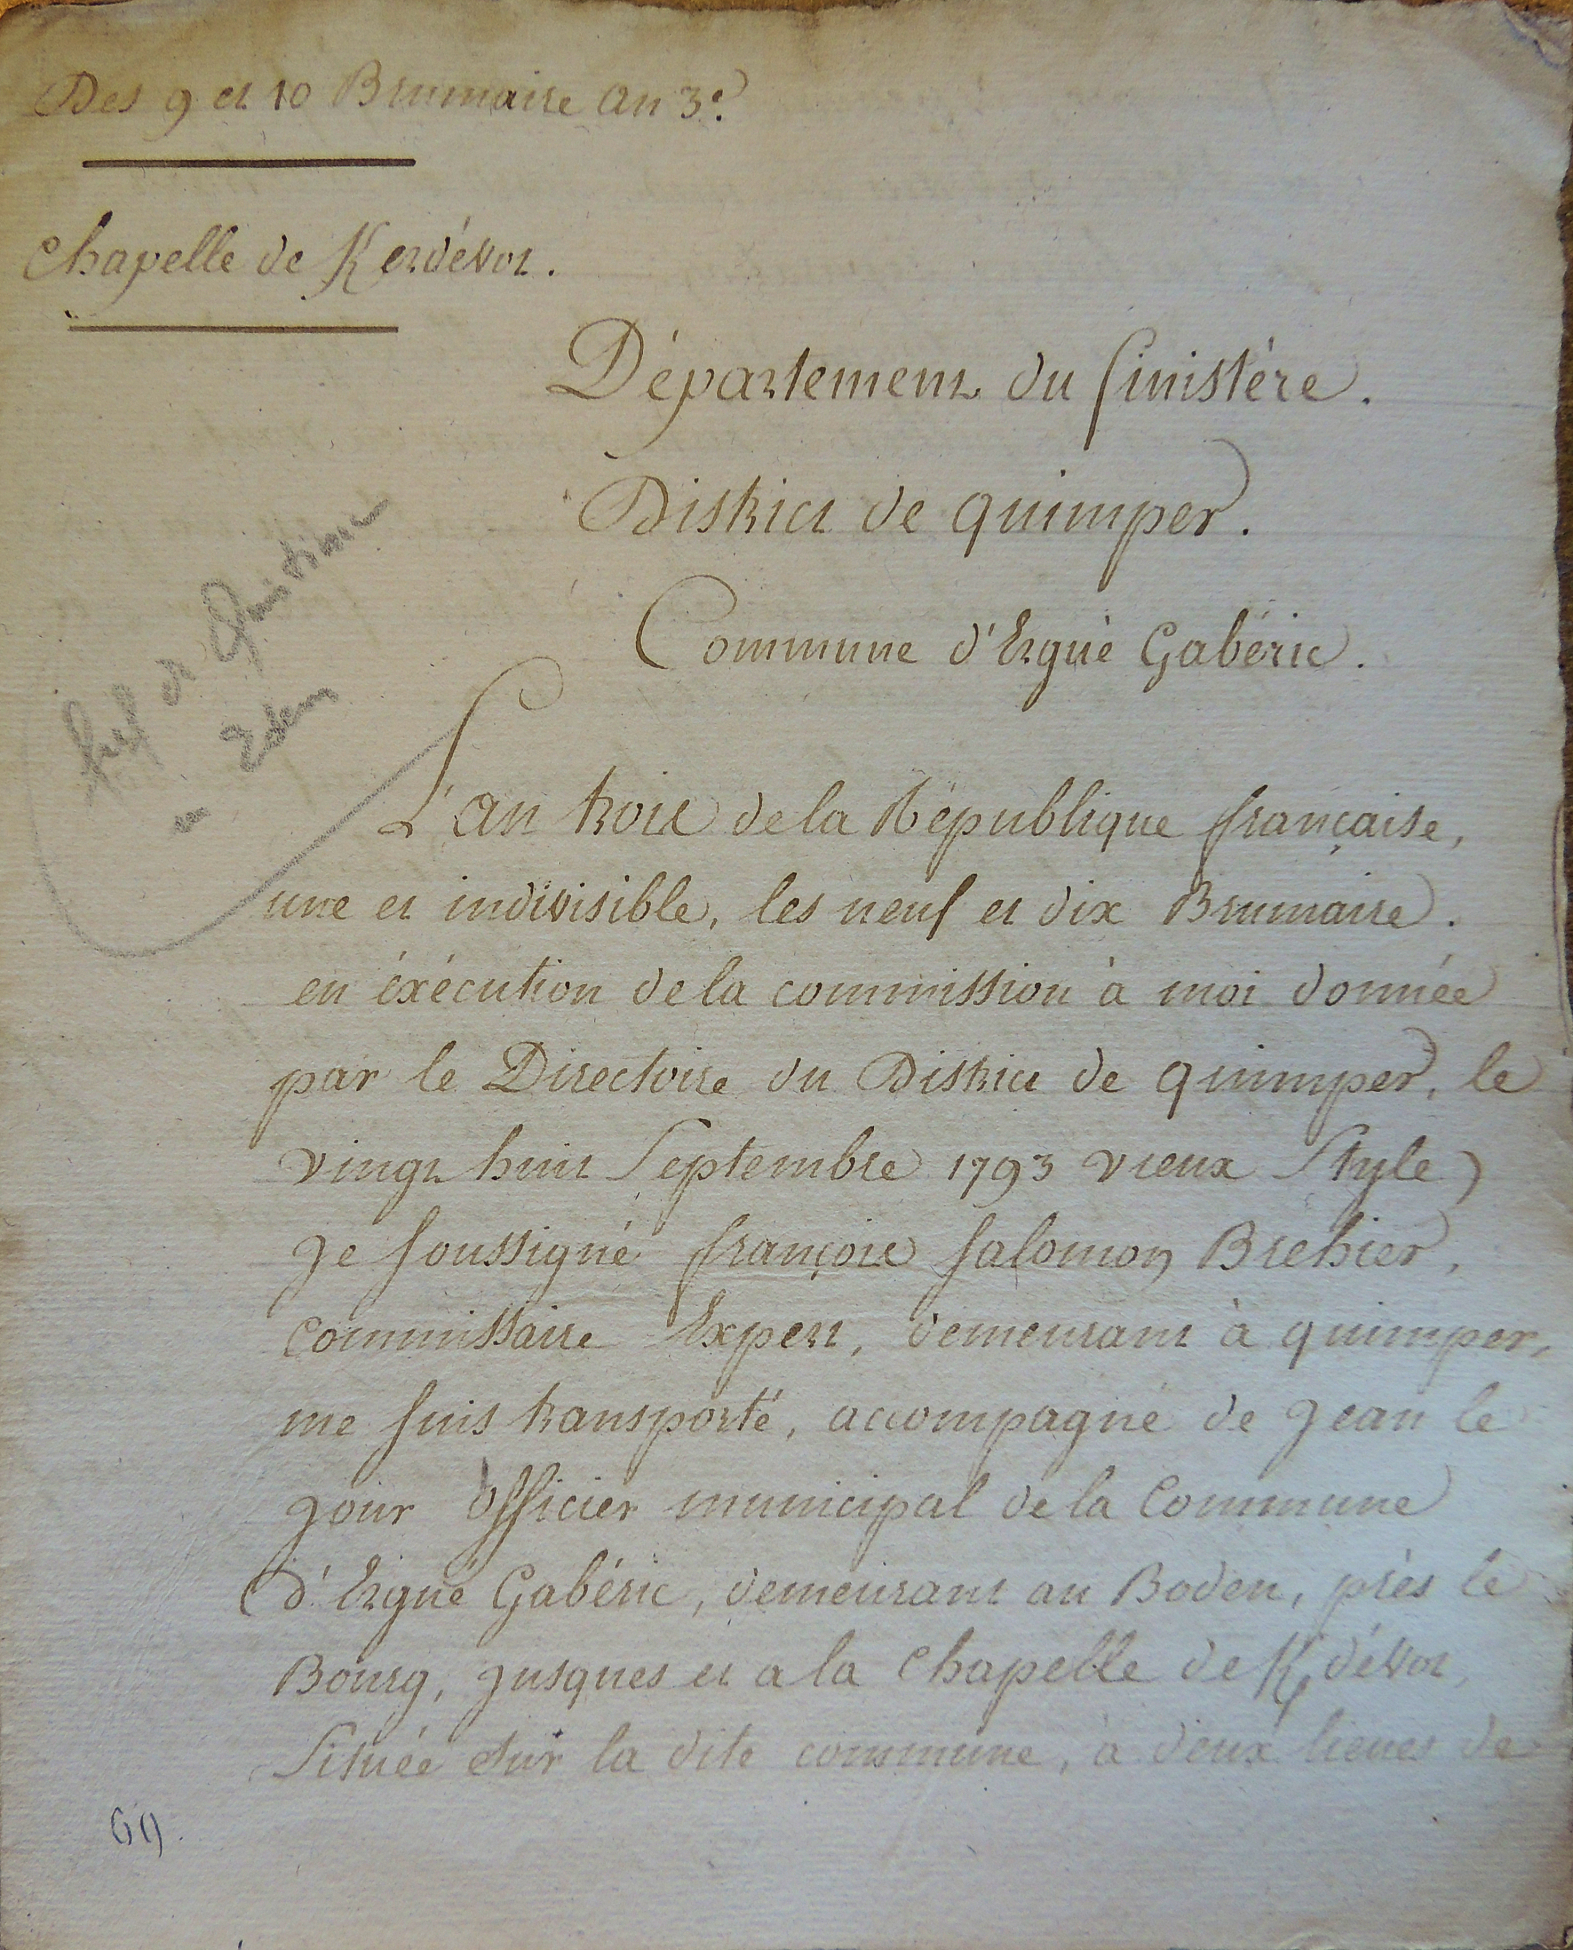 Des 9 et 10 Brumaire an 3e.
Chapelle de Kerdévot.
Département du finistère.
District de quimper.
Commune d'Ergué Gabéric.
L'an trois de la République française,
une et indivisible, les neuf et dix Brumaire.
en éxécution de la commission à moi donnée
par le Directoire du District de quimper, le
vingt huit Septembre 1793 vieux Style)
Je soussigné françois salomon Brehier,
commissaire Expert, demeurant à quimper,
me suis transporté, accompagné de Jean le
Jour officier municipal de la Commune
d'Ergué Gabéric, demeurant au Boden, près le
Bourg, Jusques et a la Chapelle de K dévot,
Située sur la dite commune, à deux lieues de
fief de
en Eden
69.